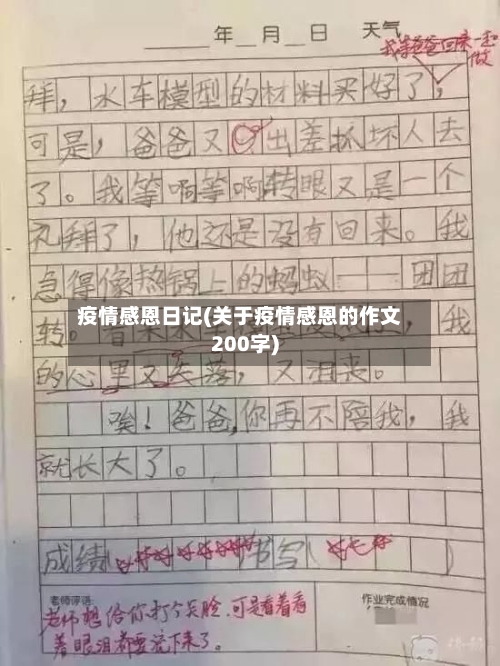 年 月 日 天气
我等爸爸回来一起做
拜，水车模型的材料买好了，
可是，爸爸又出差抓坏人去
了。我等啊等啊转眼又是一个
礼拜了，他还是没有回来。我
急得像热锅上的蚂蚁——团团
疫情感恩日记(关于疫情感恩的作文
200字)
转。看来，我
的心里又失落，又沮丧。
唉！爸爸，你再不陪我，我
就长大了。
成绩(好好好好好好 书写(
老师评语: 作业完成情况
老师想给你打个笑脸，可是看着看
着眼泪都要流下来了。